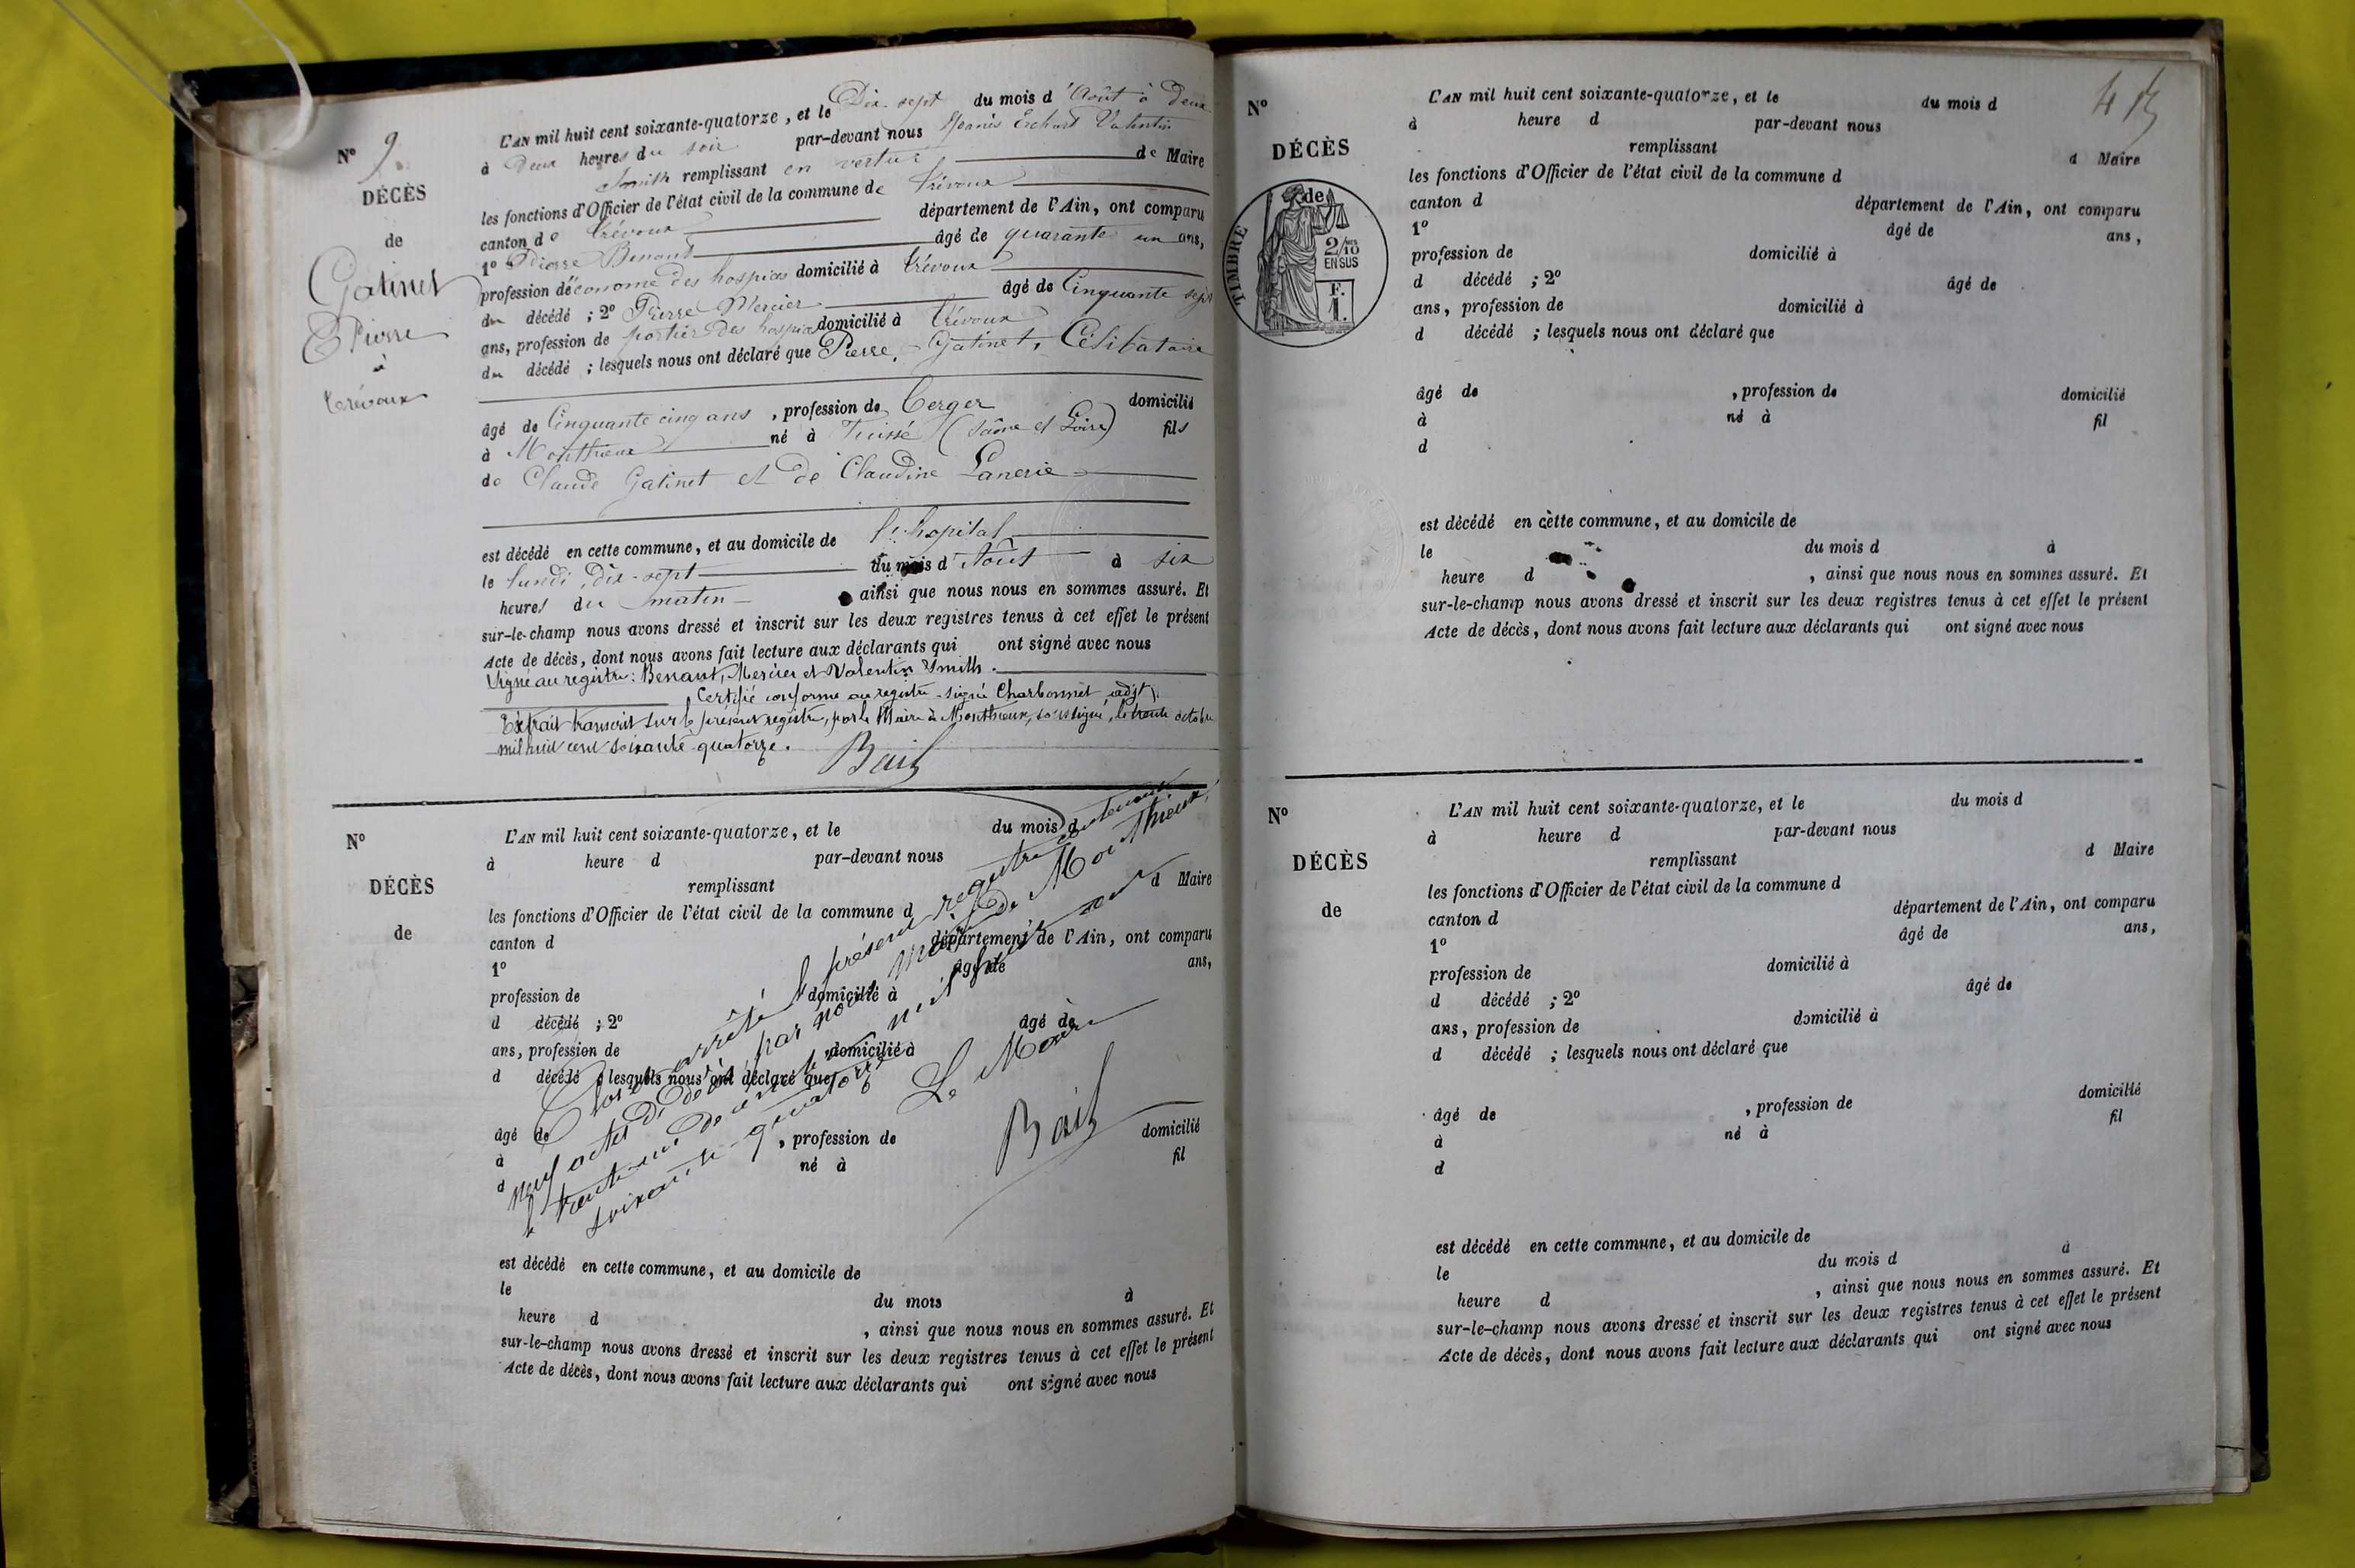 Nº 9
DÉCÈS
de
Gatinet
Pierre
à
Trévoux
L'AN mil huit cent soixante-quatorze, et le Dix-sept du mois d'Août à Deux
à Deux heures du soir par-devant nous Valentin
Smith remplissant en vertu de Maire
les fonctions d'Officier de l'état civil de la commune de Trévoux
canton de Trévoux département de l'Ain, ont comparu
1º Pierre Benant âgé de quarante un ans,
profession d'économe des hospices domicilié à Trévoux
du décédé ; 2º Pierre Mercier âgé de Cinquante sept
ans, profession de portier des hospices domicilié à Trévoux
du décédé ; lesquels nous ont déclaré que Pierre, Gatinet, Célibataire
âgé de Cinquante cinq ans, profession de berger domicilié
à Monthieux né à Fuissé (Saône et Loire) fils
de Claude Gatinet et de Claudine Lanerie
est décédé en cette commune, et au domicile de l'hopital
le lundi, dix-sept du mois d'Août à six
heures du matin ainsi que nous nous en sommes assuré. Et
sur-le-champ nous avons dressé et inscrit sur les deux registres tenus à cet effet le présent
Acte de décès, dont nous avons fait lecture aux déclarants qui ont signé avec nous
Signé au registre : Benant, Mercier et Valentin Smith.
Certifié conforme au registre - signé Charbonnet adjt.
Extrait transcrit sur le présent registre, par le Maire de Monthieux, soussigné, le trente octobre
mil huit cent soixante-quatorze.
Bail
Nº
DÉCÈS
de
L'AN mil huit cent soixante-quatorze, et le du mois d
à heure d par-devant nous
remplissant d Maire
les fonctions d'Officier de l'état civil de la commune d
canton d département de l'Ain, ont comparu
1º âgé de ans,
profession de domicilié à
d décédé ; 2º âgé de
ans, profession de domicilié à
d décédé ; lesquels nous ont déclaré que
âgé de , profession de domicilié
à né à fil
d
Clos et arrêté le présent registre contenant
neuf actes de décès, par nous maire de Monthieux,
le trente un décembre mil huit cent
soixante-quatorze
Le Maire
Bail
est décédé en cette commune, et au domicile de
le du mois à
heure d , ainsi que nous nous en sommes assuré. Et
sur-le-champ nous avons dressé et inscrit sur les deux registres tenus à cet effet le présent
Acte de décès, dont nous avons fait lecture aux déclarants qui ont signé avec nous
Nº
DÉCÈS
de
TIMBRE
2/10
EN SUS
F.
1.
L'AN mil huit cent soixante-quatorze, et le du mois d
à heure d par-devant nous
remplissant d Maire
les fonctions d'Officier de l'état civil de la commune d
canton d département de l'Ain, ont comparu
1º âgé de ans,
profession de domicilié à
d décédé ; 2º âgé de
ans, profession de domicilié à
d décédé ; lesquels nous ont déclaré que
âgé de , profession de domicilié
à né à fil
d
est décédé en cette commune, et au domicile de
le du mois d à
heure d , ainsi que nous nous en sommes assuré. Et
sur-le-champ nous avons dressé et inscrit sur les deux registres tenus à cet effet le présent
Acte de décès, dont nous avons fait lecture aux déclarants qui ont signé avec nous
Nº
DÉCÈS
de
L'AN mil huit cent soixante-quatorze, et le du mois d
à heure d par-devant nous
remplissant d Maire
les fonctions d'Officier de l'état civil de la commune d
canton d département de l'Ain, ont comparu
1º âgé de ans,
profession de domicilié à
d décédé ; 2º âgé de
ans, profession de domicilié à
d décédé ; lesquels nous ont déclaré que
âgé de , profession de domicilié
à né à fil
d
est décédé en cette commune, et au domicile de
le du mois d à
heure d , ainsi que nous nous en sommes assuré. Et
sur-le-champ nous avons dressé et inscrit sur les deux registres tenus à cet effet le présent
Acte de décès, dont nous avons fait lecture aux déclarants qui ont signé avec nous